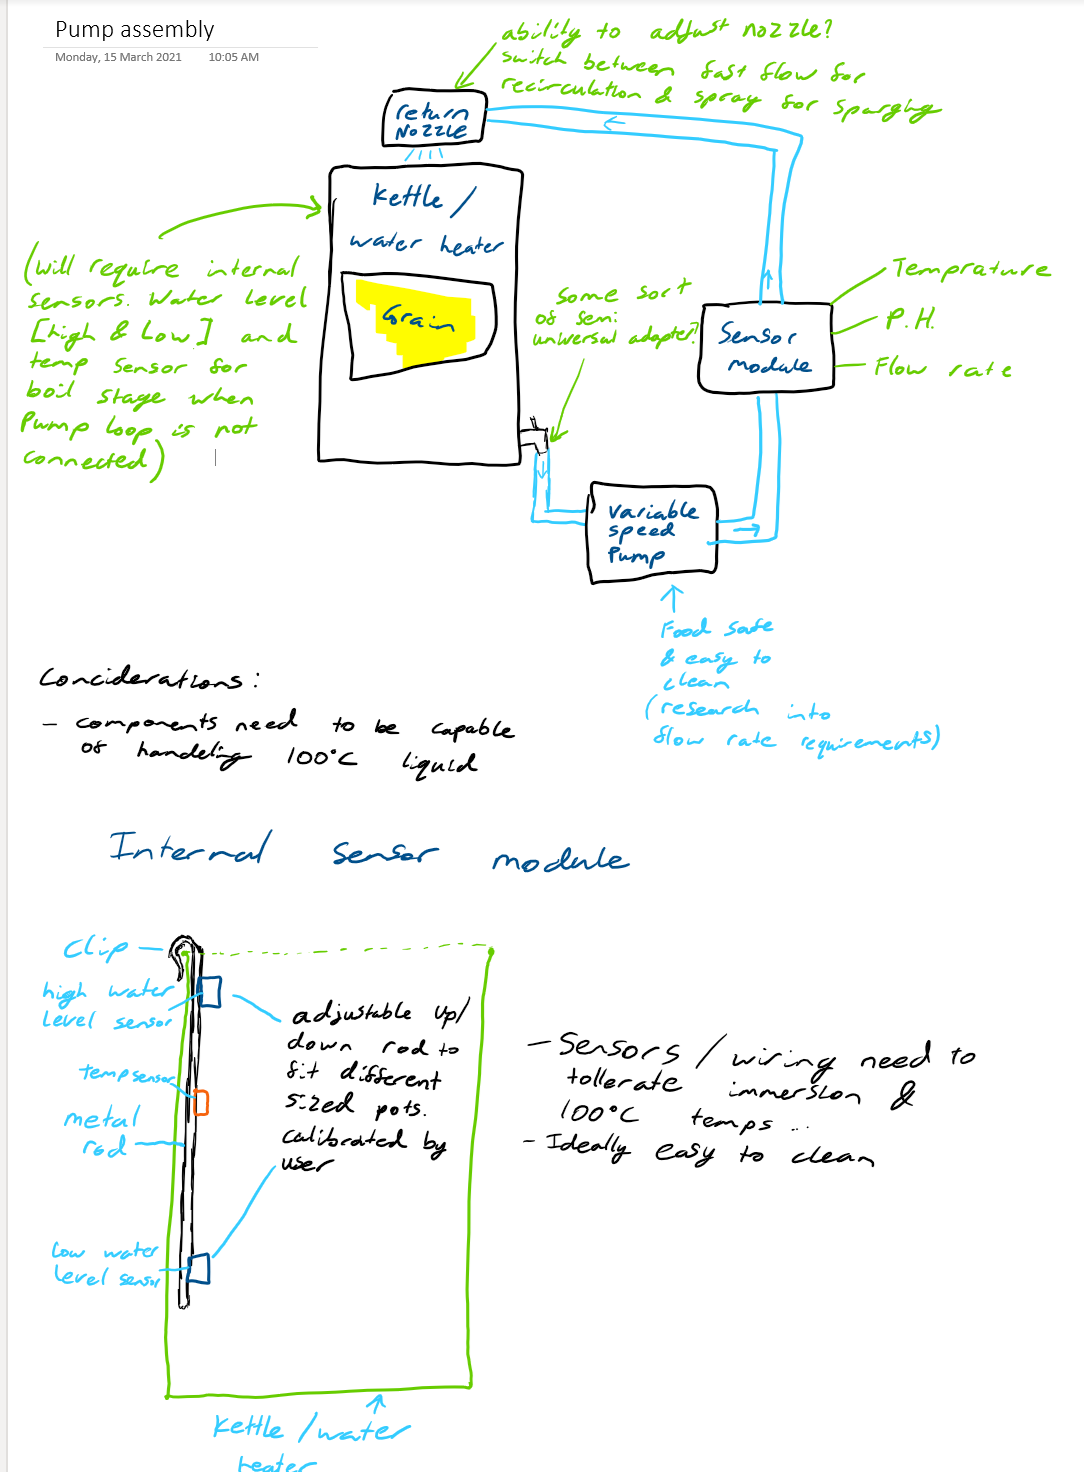 Pump assembly
Monday, 15 March 2021 10:05 AM
ability to adjust nozzle?
switch between fast flow for
recirculation & spray for sparging
return
Nozzle
Kettle /
water heater
Grain
(will require internal
sensors. Water Level
[high & Low] and
temp sensor for
boil stage when
Pump loop is not
connected)
Some sort
of semi
universal adapter?
Sensor
module
Temprature
P.H.
Flow rate
Variable
speed
Pump
Food safe
& easy to
clean
(research into
flow rate requirements)
Conciderations:
- components need to be capable
of handeling 100°C liquid
Internal sensor module
Clip
high water
Level sensor
temp sensor
metal
rod
Low water
Level sensor
adjustable up/
down rod to
fit different
sized pots.
calibrated by
user
- Sensors / wiring need to
tollerate immersion &
100°C temps ...
- Ideally easy to clean
Kettle / water
heater